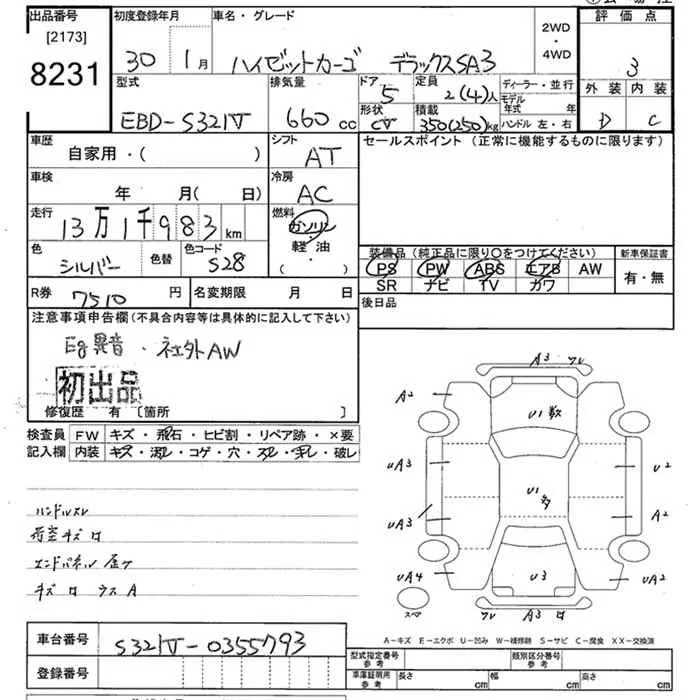 出品番号 初度登録年月 車名・グレード 2WD・4WD 評価点
[2173]
8231 30年 1月 ハイゼットカーゴ デラックスSA3 3
型式 排気量 ドア 定員 ディーラー・並行 外装 内装
EBD-S321V 660cc 5 2(4)人 モデル年式 年 D C
形状 積載
CV 350(250)kg ハンドル 左・右
車歴 シフト セールスポイント (正常に機能するものに限ります)
自家用・( ) AT
車検 冷房
年 月( 日) AC
走行 燃料
13万1千983km ガソリン
軽油
・( )
色 色替 色コード
シルバー S28
装備品 (純正品に限り○をつけてください) 新車保証書
PS PW ABS エアB AW 有・無
SR ナビ TV カワ
R券 7510円 名変期限 月 日 後日品
注意事項申告欄 (不具合内容等は具体的に記入して下さい)
Eg異音・社外AW
初出品
修復歴 有 [箇所 ]
検査員 FW キズ・飛石・ヒビ割・リペア跡・×要
記入欄 内装 キズ・汚レ・コゲ・穴・スレ・破レ
ハンドルスレ
荷室キズ ロ
エンドパネル 歪ケ
キズ ロ ウス A
A3
A2
U1
UA3 U2
U1
UA3 A2
UA4 U3 UA2
A3
A-キズ E-エクボ U-凹み W-補修跡 S-サビ C-腐食 XX-交換済
車台番号 S321V-0355793
登録番号
型式指定番号 参考 類別区分番号 参考
車庫証明用 参考 長さ cm 幅 cm 高さ cm